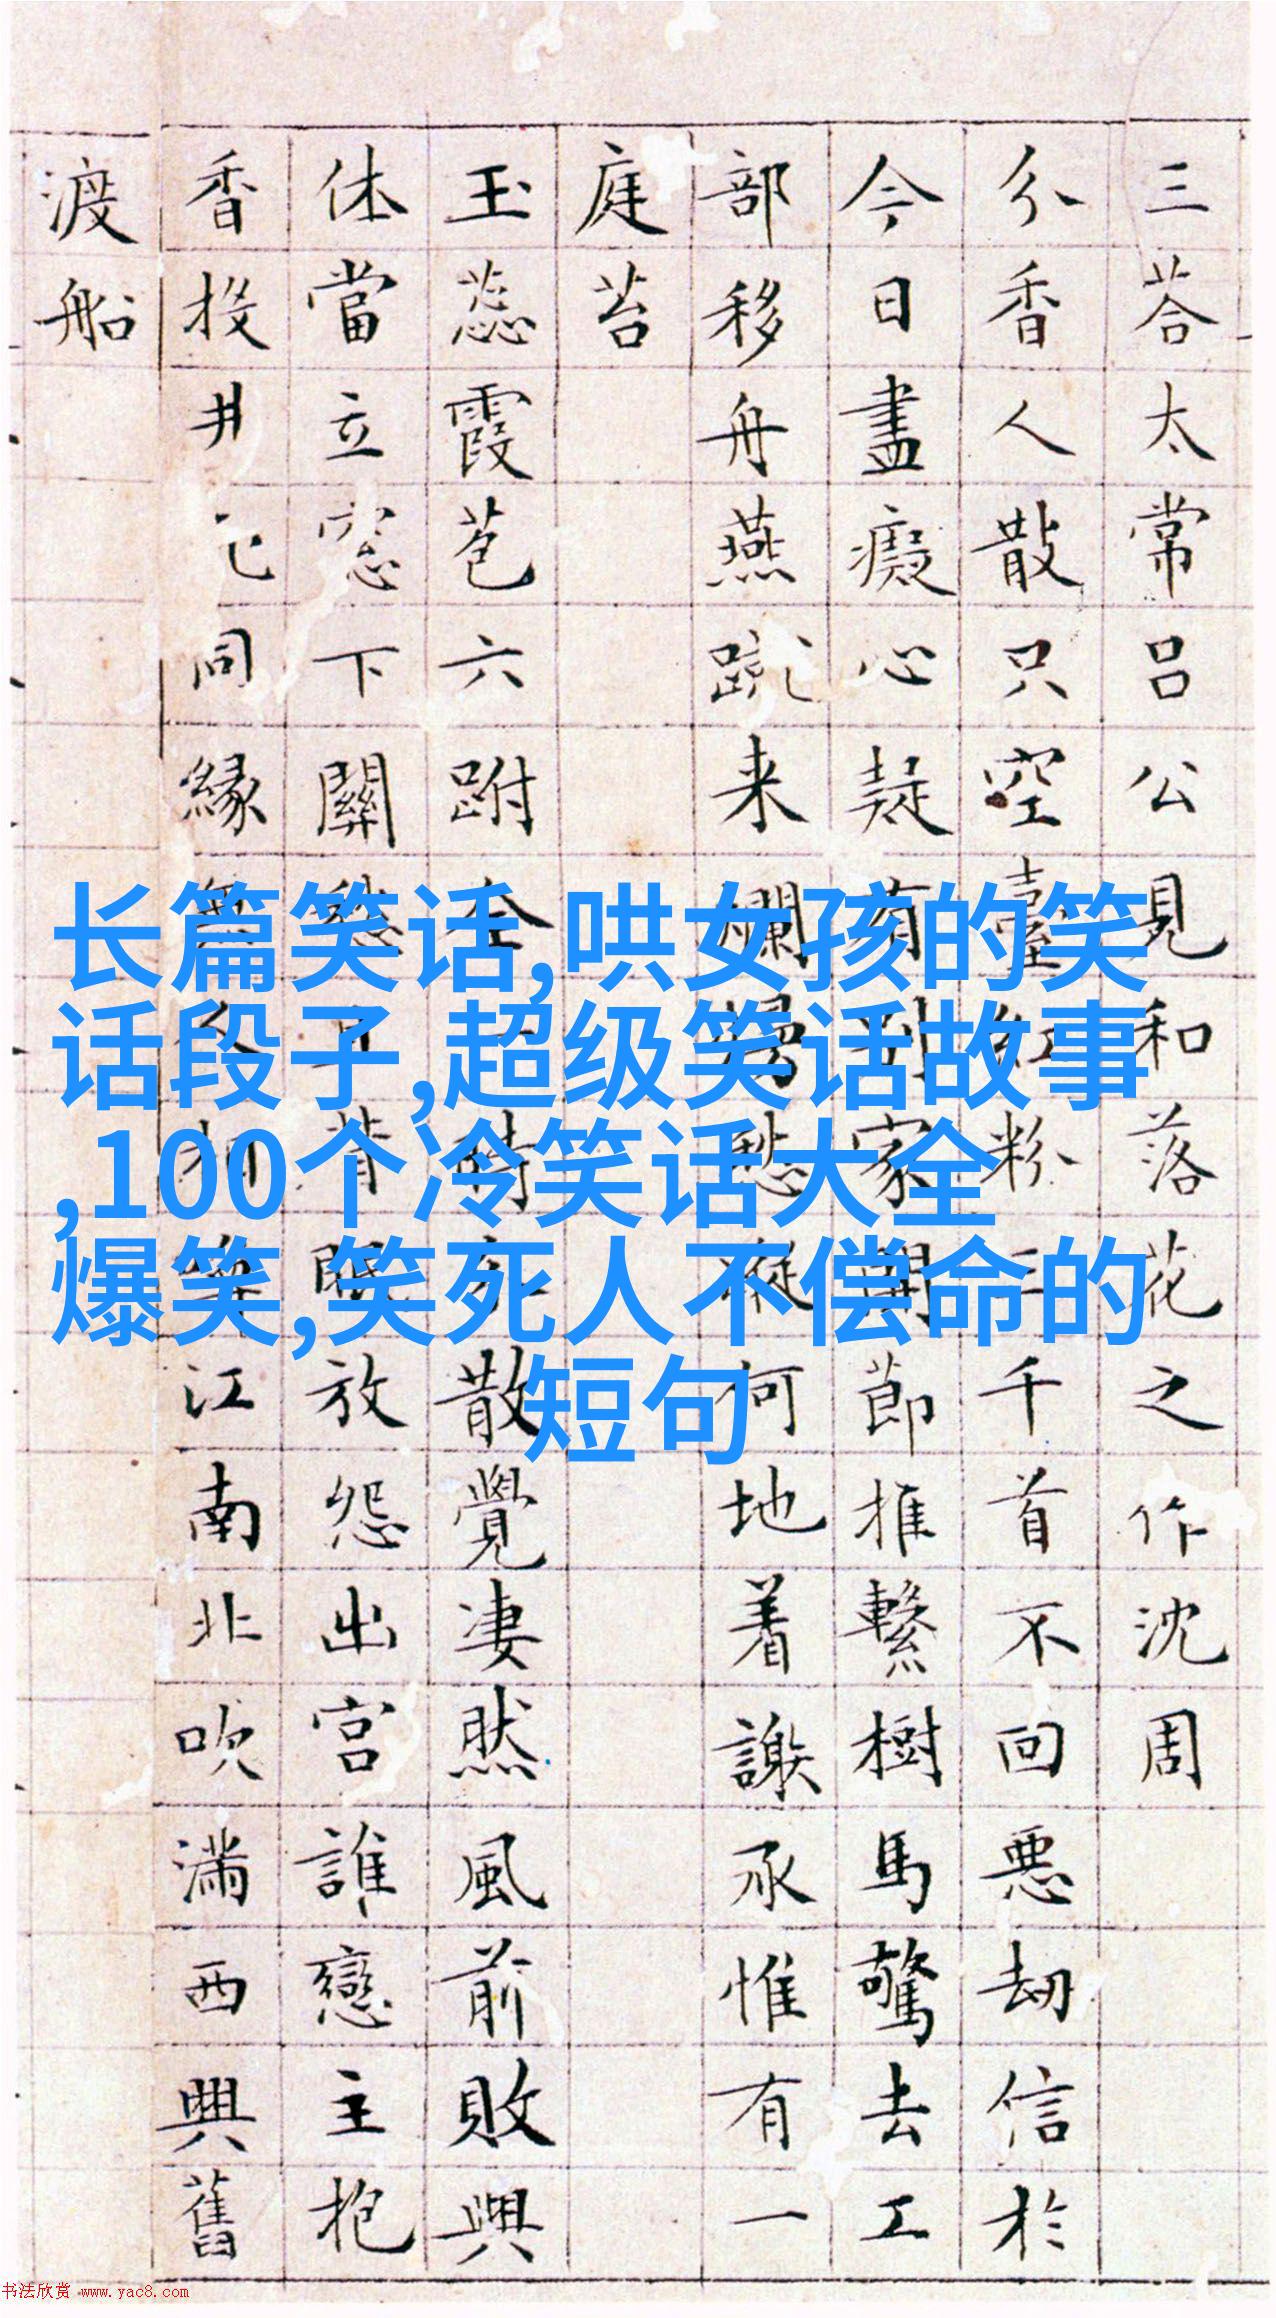 三荅太常吕公見和落花之作沈周
分香人散只空臺紅粉三千首不回悪劫信於
今日盡癡心疑有別家開節推繫樹馬驚去工
部移舟燕蹴来爛熳愁何地着謝承惟有一
庭苔
玉蕊霞苞六跗全時散覺凄然風前敗興
休當立窓下關背眼放怨出宫誰戀主抱
香投井同縁江南北吹滿西興舊
渡船
长篇笑话,哄女孩的笑
话段子,超级笑话故事
,100个冷笑话大全
爆笑,笑死人不偿命的
短句
书法欣赏 www.yac8.com